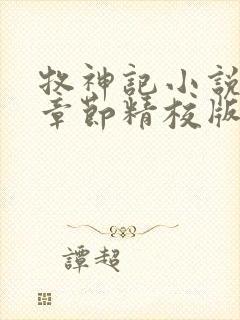 牧神記小說
章節精校版
譚超